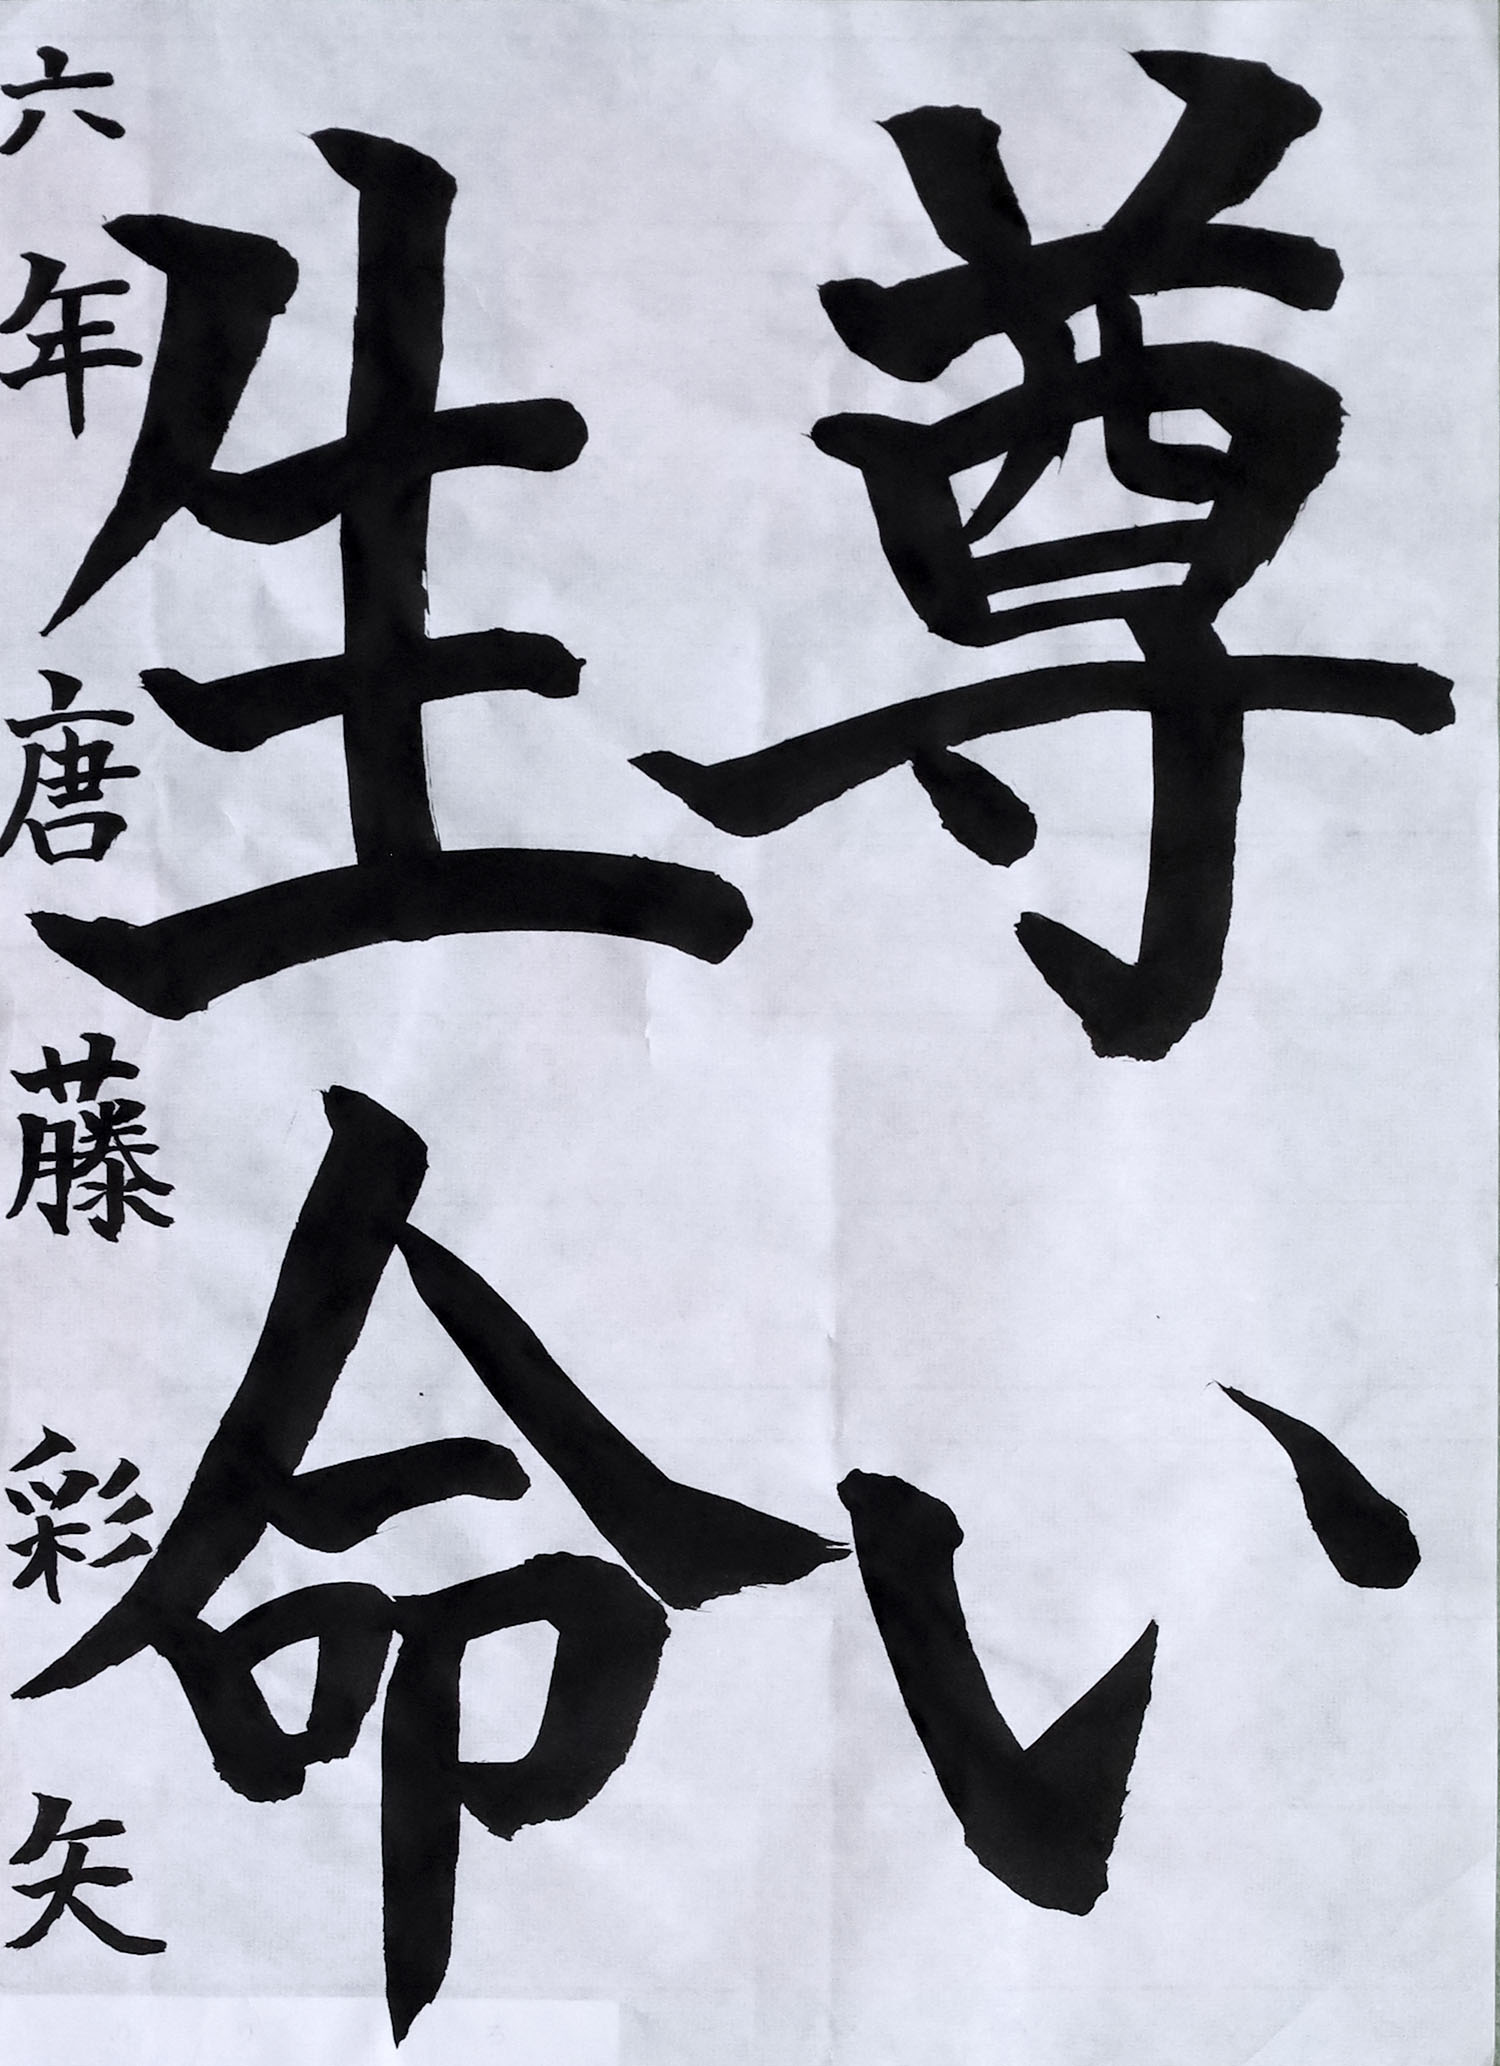 尊い
生命
六年 唐藤 彩矢